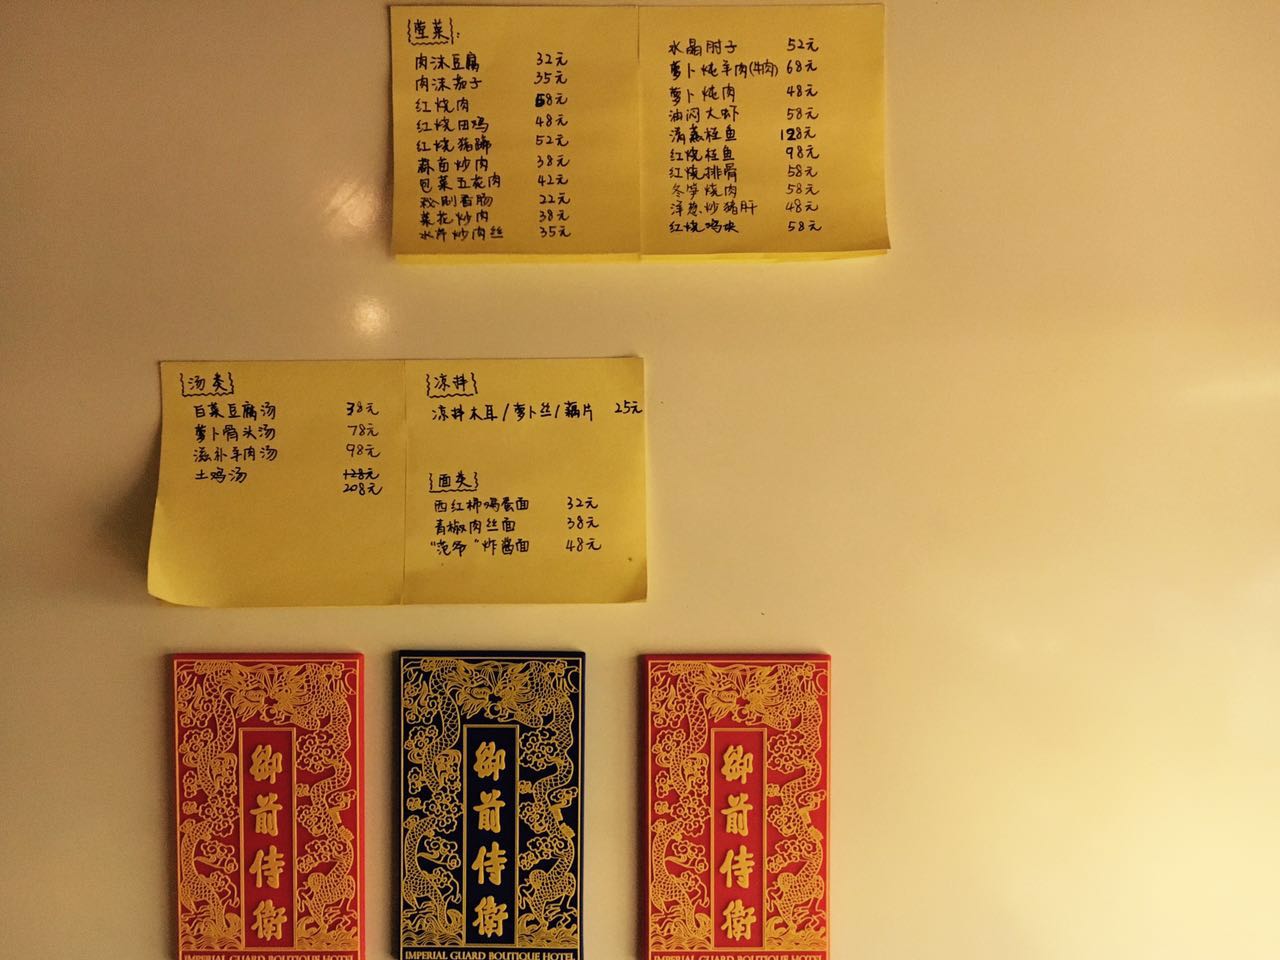 荤菜:
肉沫豆腐 32元
肉沫茄子 35元
红烧肉 58元
红烧田鸡 48元
红烧猪蹄 52元
蒜苗炒肉 38元
包菜五花肉 42元
秘制香肠 22元
菜花炒肉 38元
水芹炒肉丝 35元
水晶肘子 52元
萝卜炖羊肉(牛肉) 68元
萝卜炖肉 48元
油闷大虾 58元
清蒸桂鱼 128元
红烧桂鱼 98元
红烧排骨 58元
冬笋烧肉 58元
洋葱炒猪肝 48元
红烧鸡块 58元
汤类
白菜豆腐汤 38元
萝卜骨头汤 78元
滋补羊肉汤 98元
土鸡汤 128元
208元
凉拌
凉拌木耳/萝卜丝/藕片 25元
面类
西红柿鸡蛋面 32元
青椒肉丝面 38元
"范爷"炸酱面 48元
御前侍衛
IMPERIAL GUARD BOUTIQUE HOTEL
御前侍衛
IMPERIAL GUARD BOUTIQUE HOTEL
御前侍衛
IMPERIAL GUARD BOUTIQUE HOTEL